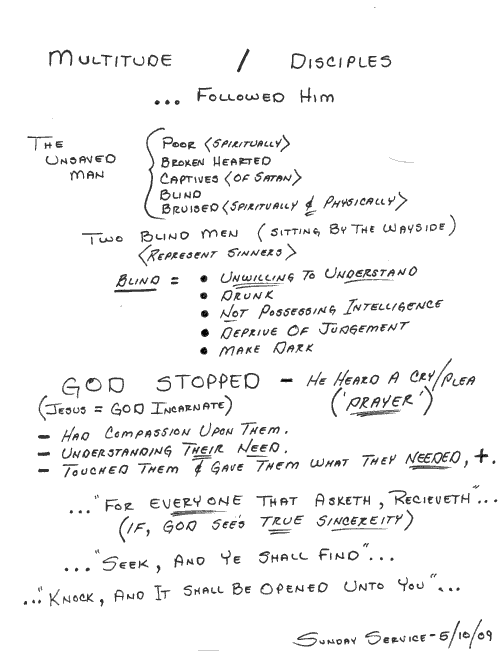 MULTITUDE / DISCIPLES
... FOLLOWED HIM
THE UNSAVED MAN
POOR <SPIRITUALLY>
BROKEN HEARTED
CAPTIVES <OF SATAN>
BLIND
BRUISED <SPIRITUALLY & PHYSICALLY>
TWO BLIND MEN (SITTING BY THE WAYSIDE)
<REPRESENT SINNERS>
BLIND = • UNWILLING TO UNDERSTAND
• DRUNK
• NOT POSSESSING INTELLIGENCE
• DEPRIVE OF JUDGEMENT
• MAKE DARK
GOD STOPPED - HE HEARD A CRY/PLEA
(JESUS = GOD INCARNATE) ('PRAYER')
- HAD COMPASSION UPON THEM.
- UNDERSTANDING THEIR NEED.
- TOUCHED THEM & GAVE THEM WHAT THEY NEEDED, +.
..."FOR EVERYONE THAT ASKETH, RECIEVETH"...
(IF, GOD SEE'S TRUE SINCEREITY)
..."SEEK, AND YE SHALL FIND"...
..."KNOCK, AND IT SHALL BE OPENED UNTO YOU"...
SUNDAY SERVICE - 5/10/09